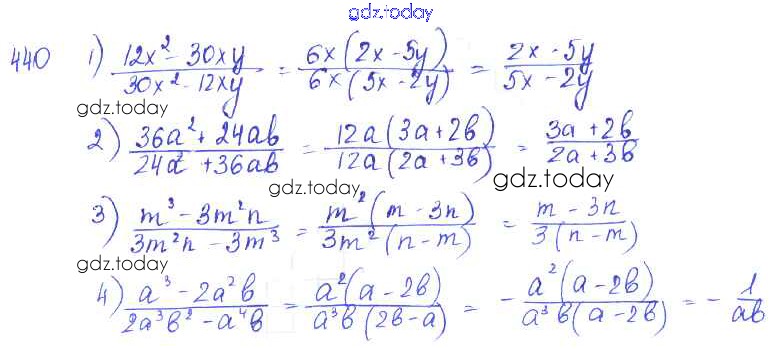 gdz.today
440 1) (12x² - 30xy)/(30x² - 12xy) = 6x(2x - 5y)/6x(5x - 2y) = (2x - 5y)/(5x - 2y)
gdz.today
2) (36a² + 24ab)/(24a² + 36ab) = 12a(3a + 2b)/12a(2a + 3b) = (3a + 2b)/(2a + 3b)
gdz.today gdz.today
3) (m³ - 3m²n)/(3m²n - 3m³) = m²(m - 3n)/3m²(n - m) = (m - 3n)/3(n - m)
gdz.today
4) (a³ - 2a²b)/(2a³b² - a⁴b) = a²(a - 2b)/a³b(2b - a) = - a²(a - 2b)/a³b(a - 2b) = - 1/ab
gdz.today